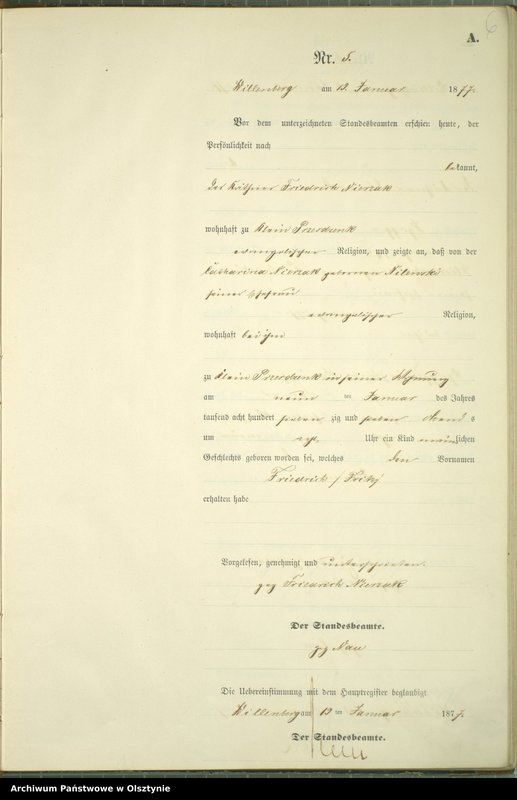 6
A.
Nr. 5.
Willenberg am 13. Januar 1877.
Vor dem unterzeichneten Standesbeamten erschien heute, der
Persönlichkeit nach
bekannt,
der Käthner Friedrich Nierzak
wohnhaft zu Klein Przesdzienk
evangelischer Religion, und zeigte an, daß von der
Catharina Nierzak geborenen
seiner Ehefrau
evangelischer Religion,
wohnhaft bei ihm
zu Klein Przesdzienk in seiner Wohnung
am neunten Januar des Jahres
tausend acht hundert sieben zig und sieben Abends
um acht Uhr ein Kind männlichen
Geschlechts geboren worden sei, welches den Vornamen
Friedrich /Fritz/
erhalten habe
Vorgelesen, genehmigt und unterschrieben.
gez Friedrich Nierzak
Der Standesbeamte.
gez Nau
Die Uebereinstimmung mit dem Hauptregister beglaubigt
Willenberg am 13 ten Januar 1877.
Der Standesbeamte.
Nau
Archiwum Państwowe w Olsztynie